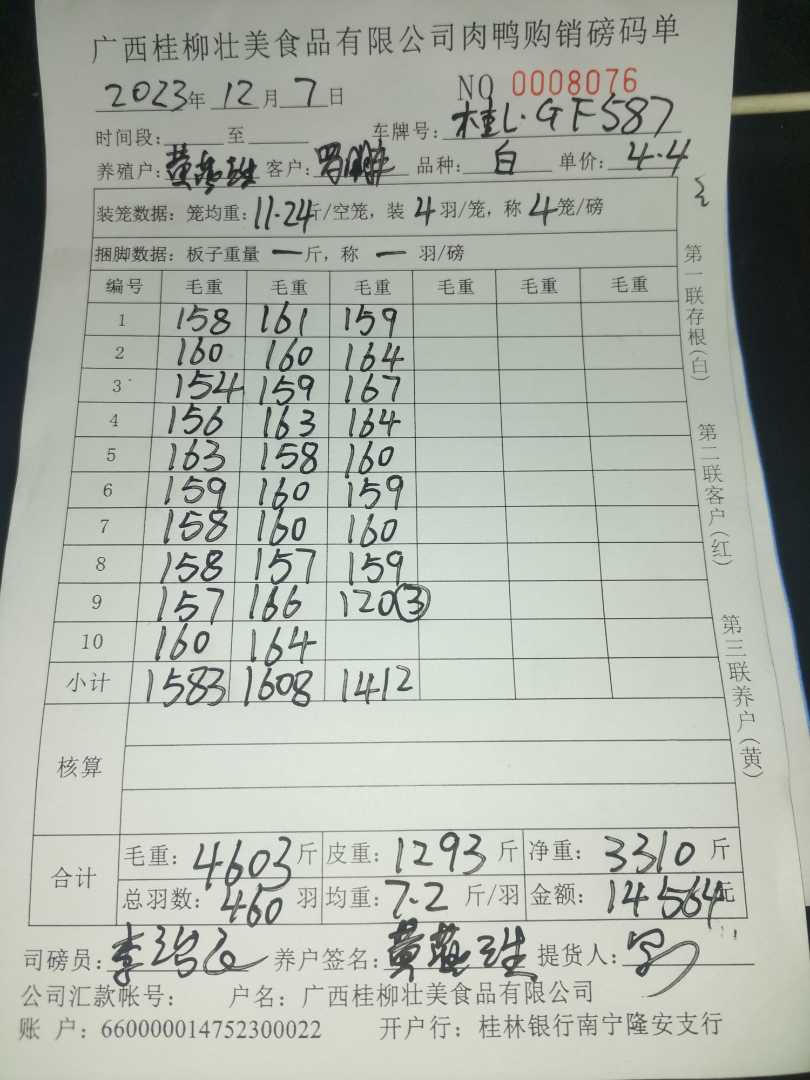 广西桂柳壮美食品有限公司肉鸭购销磅码单
2023年 12月 7日 NO 0008076
时间段: 至 车牌号: 桂L·GF587
养殖户: 黄 客户: 品种: 白 单价: 4.4
装笼数据: 笼均重: 11.24斤/空笼, 装 4 羽/笼, 称 4 笼/磅
捆脚数据: 板子重量 一 斤, 称 一 羽/磅
编号 毛重 毛重 毛重 毛重 毛重 毛重
1 158 161 159
2 160 160 164
3 154 159 167
4 156 163 164
5 163 158 160
6 159 160 159
7 158 160 160
8 158 157 159
9 157 166 120③
10 160 164
小计 1583 1608 1412
核算
合计
毛重: 4603斤 皮重: 1293 斤 净重: 3310 斤
总羽数: 460 羽 均重: 7.2 斤/羽 金额: 14564元
司磅员: 李 养户签名: 黄 提货人:
公司汇款帐号: 户名: 广西桂柳壮美食品有限公司
账 户: 660000014752300022 开户行: 桂林银行南宁隆安支行
第一联存根(白)
第二联客户(红)
第三联养户(黄)